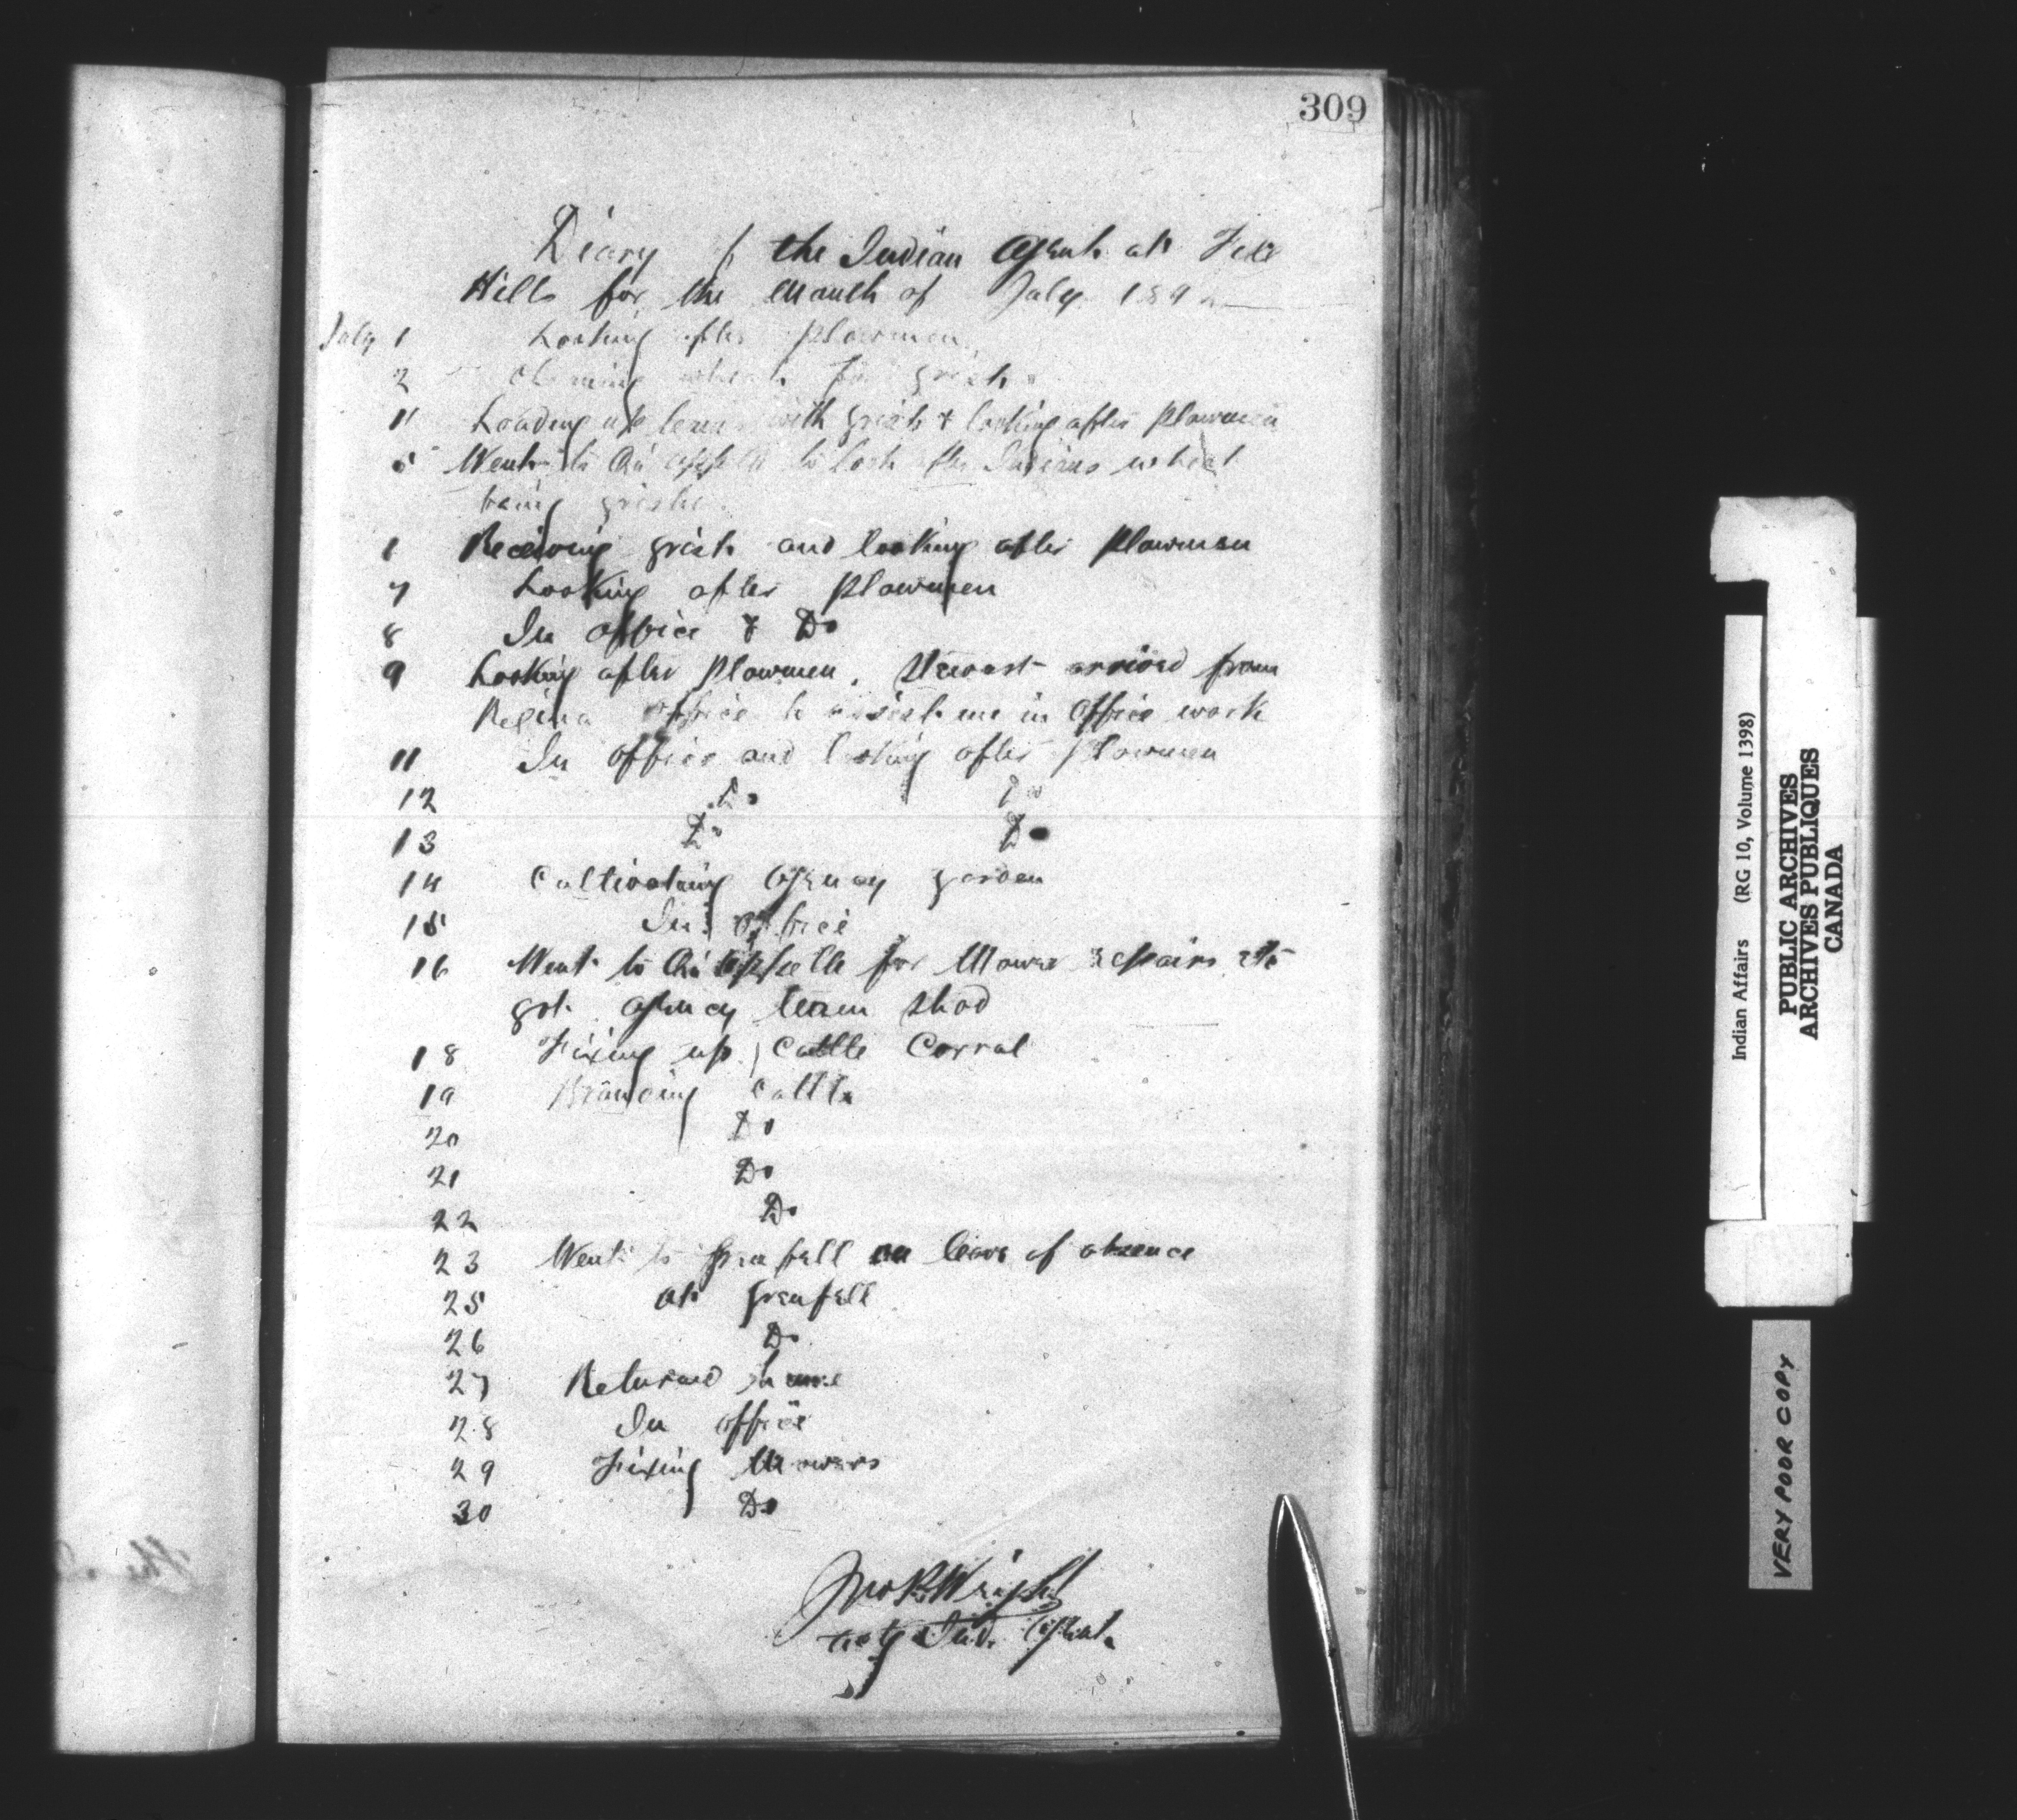 309
Diary of the Indian Agent at File
Hills for the Month of July 1892
July 1 Looking after Plowmen
2 Cleaning wheat for grist
4 Loading up teams with grist & looking after Plowmen
5 Went to Qu'Appelle to look after Indians wheat
being
6 Receiving grist and looking after Plowmen
7 Looking after Plowmen
8 In office & Do
9 Looking after Plowmen. Stewart arrived from
Regina office to assist me in Office work
11 In office and looking after Plowmen
12 Do Do
13 Do Do
14 Cultivating Agency garden
15 In office
16 Went to Qu'Appelle for Mower repairs etc
got agency team shod
18 Fixing up Cattle Corral
19 Branding Cattle
20 Do
21 Do
22 Do
23 Went to Grenfell on leave of absence
25 At Grenfell
26 Do
27 Returned home
28 In office
29 Fixing Mowers
30 Do
Jno P Wright
Actg Ind. Agent.
Indian Affairs (RG 10, Volume 1398)
PUBLIC ARCHIVES
ARCHIVES PUBLIQUES
CANADA
VERY POOR COPY